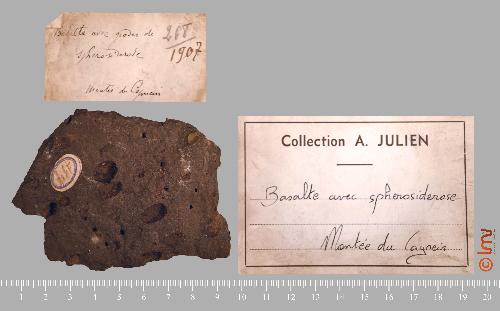 Basalte avec geodes de
spherosiderose
268
1907
Montée du Cayneis
Collection A. JULIEN
Basalte avec spherosiderose
Montée du Cayneis
© lmv
1 2 3 4 5 6 7 8 9 10 11 12 13 14 15 16 17 18 19 20